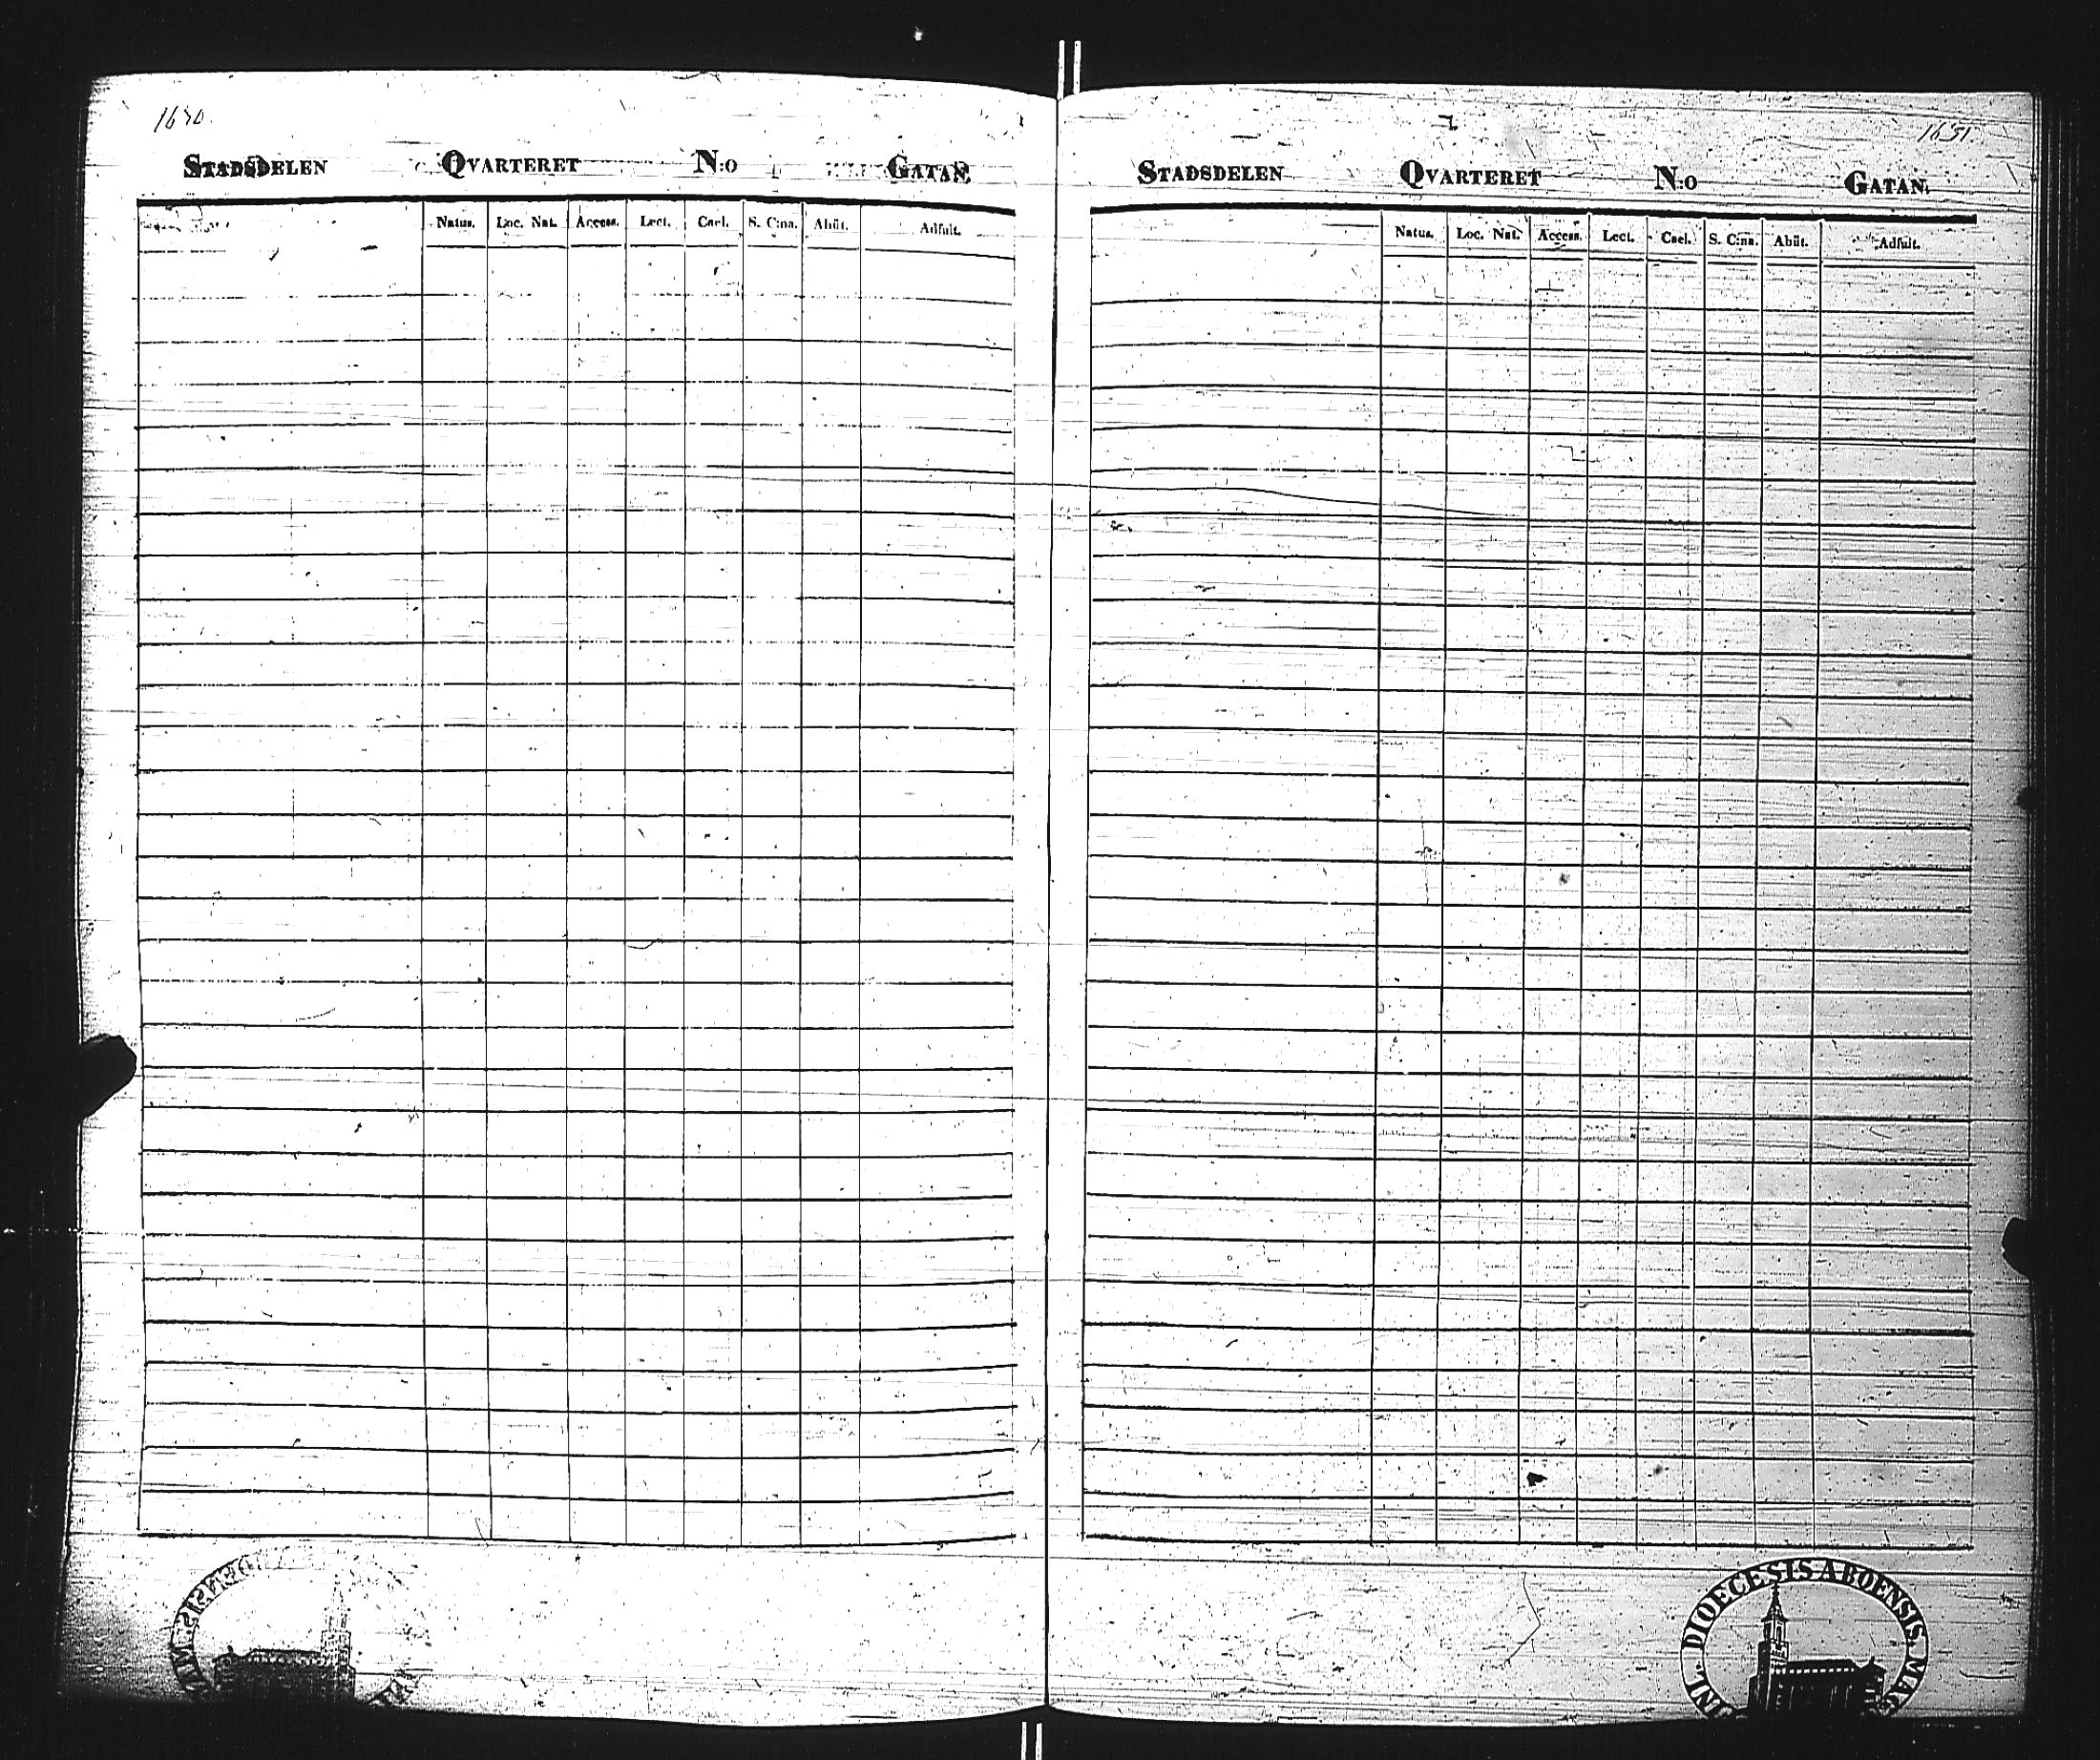 1650.
STADSDELEN QVARTERET N:o GATAN.
Natus. Loc. Nat. Access. Lect. Cael. S. C:na. Abiit. Adfuit.
1651.
STADSDELEN QVARTERET N:o GATAN.
Natus. Loc. Nat. Access. Lect. Cael. S. C:na. Abiit. Adfuit.
DIOECESIS ABOENSIS. MAG